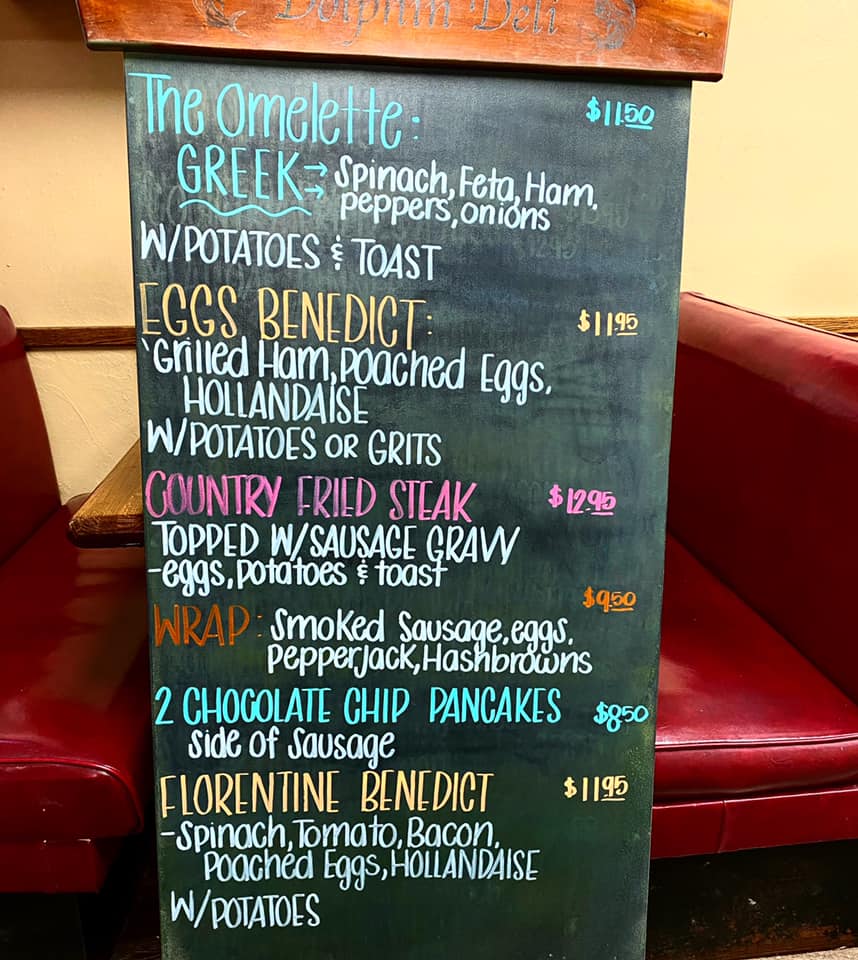 Dolphin Deli
The Omelette: $11.50
GREEK→→ Spinach, Feta, Ham,
peppers, onions
W/POTATOES & TOAST
EGGS BENEDICT: $11.95
Grilled Ham, Poached Eggs,
HOLLANDAISE
W/POTATOES OR GRITS
COUNTRY FRIED STEAK $12.95
TOPPED W/SAUSAGE GRAVY
-eggs, potatoes & toast
$9.50
WRAP: Smoked Sausage, eggs,
pepperjack, Hashbrowns
2 CHOCOLATE CHIP PANCAKES $8.50
Side of Sausage
FLORENTINE BENEDICT $11.95
-Spinach, Tomato, Bacon,
Poached Eggs, HOLLANDAISE
W/POTATOES